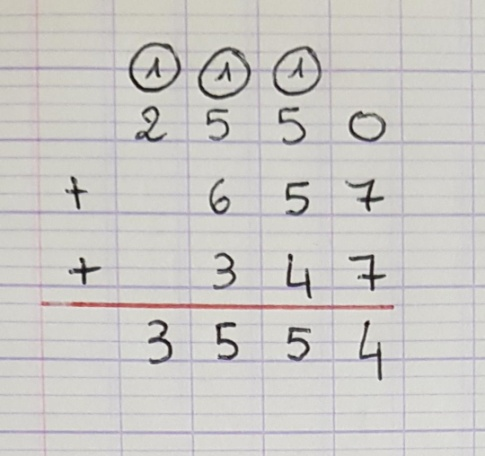 1 1 1
2 5 5 0
+ 6 5 7
+ 3 4 7
3 5 5 4